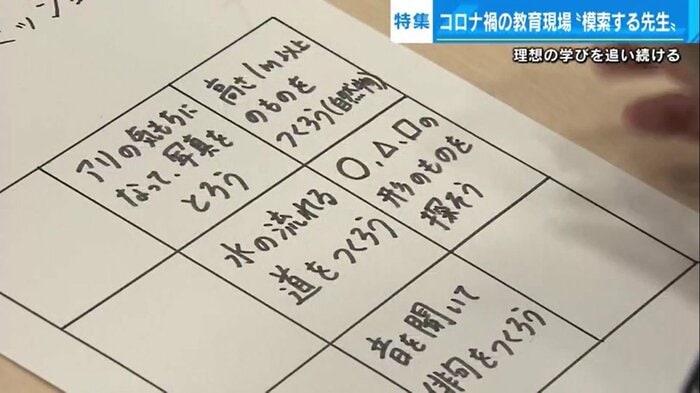 特集 コロナ禍の教育現場〝模索する先生〟
理想の学びを追い続ける
ミッシ
高さ1m以上
のものを
つくろう(自然物)
アリの気もちに
なって、写真を
とろう
○、△、□の
形のものを
探そう
水の流れる
道をつくろう
音を聞いて
俳句をつくろう